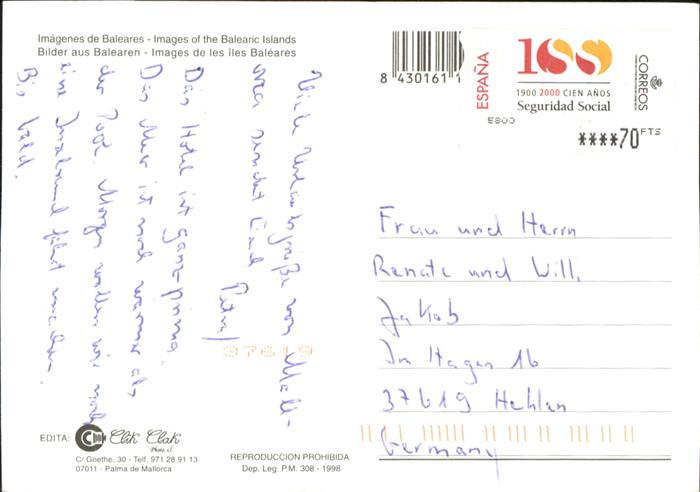 Imágenes de Baleares - Images of the Balearic Islands
Bilder aus Balearen - Images de les îles Baléares
8 430161 1
ESPAÑA
100
1900 2000 CIEN AÑOS
Seguridad Social
CORREOS
5800
****70 PTS
Viele Urlaubsgrüße von Mall-
orca sendet Euch
Petra
Das Hotel ist ganz prima.
Das Meer ist noch wärmer als
der Pool. Morgen wollen wir noch
eine Inselrundfahrt machen.
Bis bald.
Frau und Herrn
Renate und Willi
Jakob
Im Hagen 16
37619 Hehlen
Germany
37619
EDITA:
Clik Clak
Photo s.l
C/ Goethe, 30 - Telf. 971 28 91 13
07011 - Palma de Mallorca
REPRODUCCION PROHIBIDA
Dep. Leg. P.M. 308 - 1998